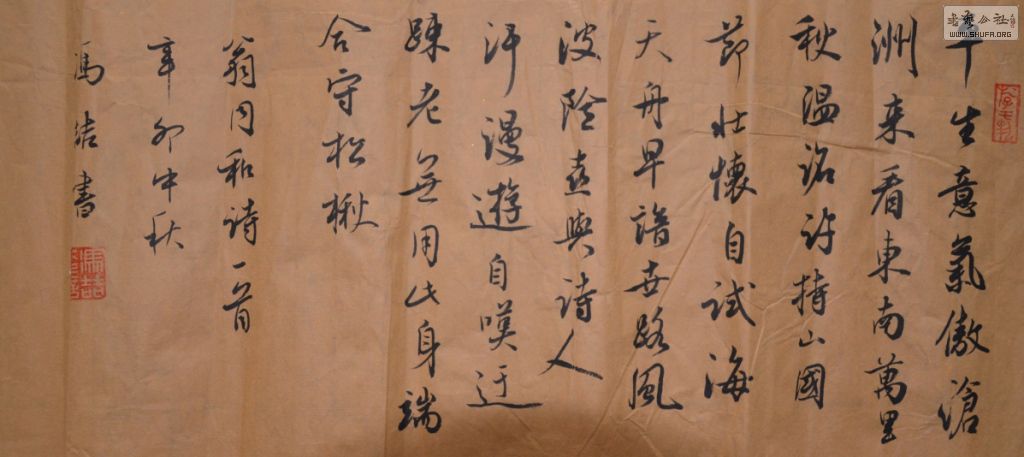 平生意氣傲滄
洲来看東南萬里
秋温詔許持山國
節壯懷自試海
天舟早諳世路風
波險喜與诗人
汗漫遊自嘆迂
疎老無用此身端
合守松楸
翁同和诗一首
辛卯中秋
馮喆書
WWW.SHUFA.ORG